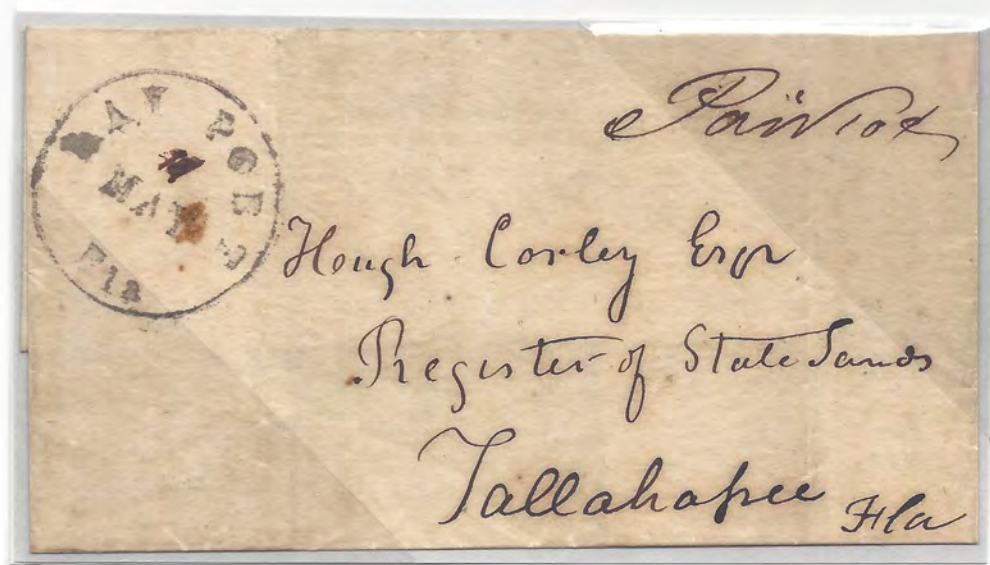 BAY PORT
MAY
Fla
Paid 10¢
Hough Corley Esqr
Register of State Lands
Tallahassee Fla